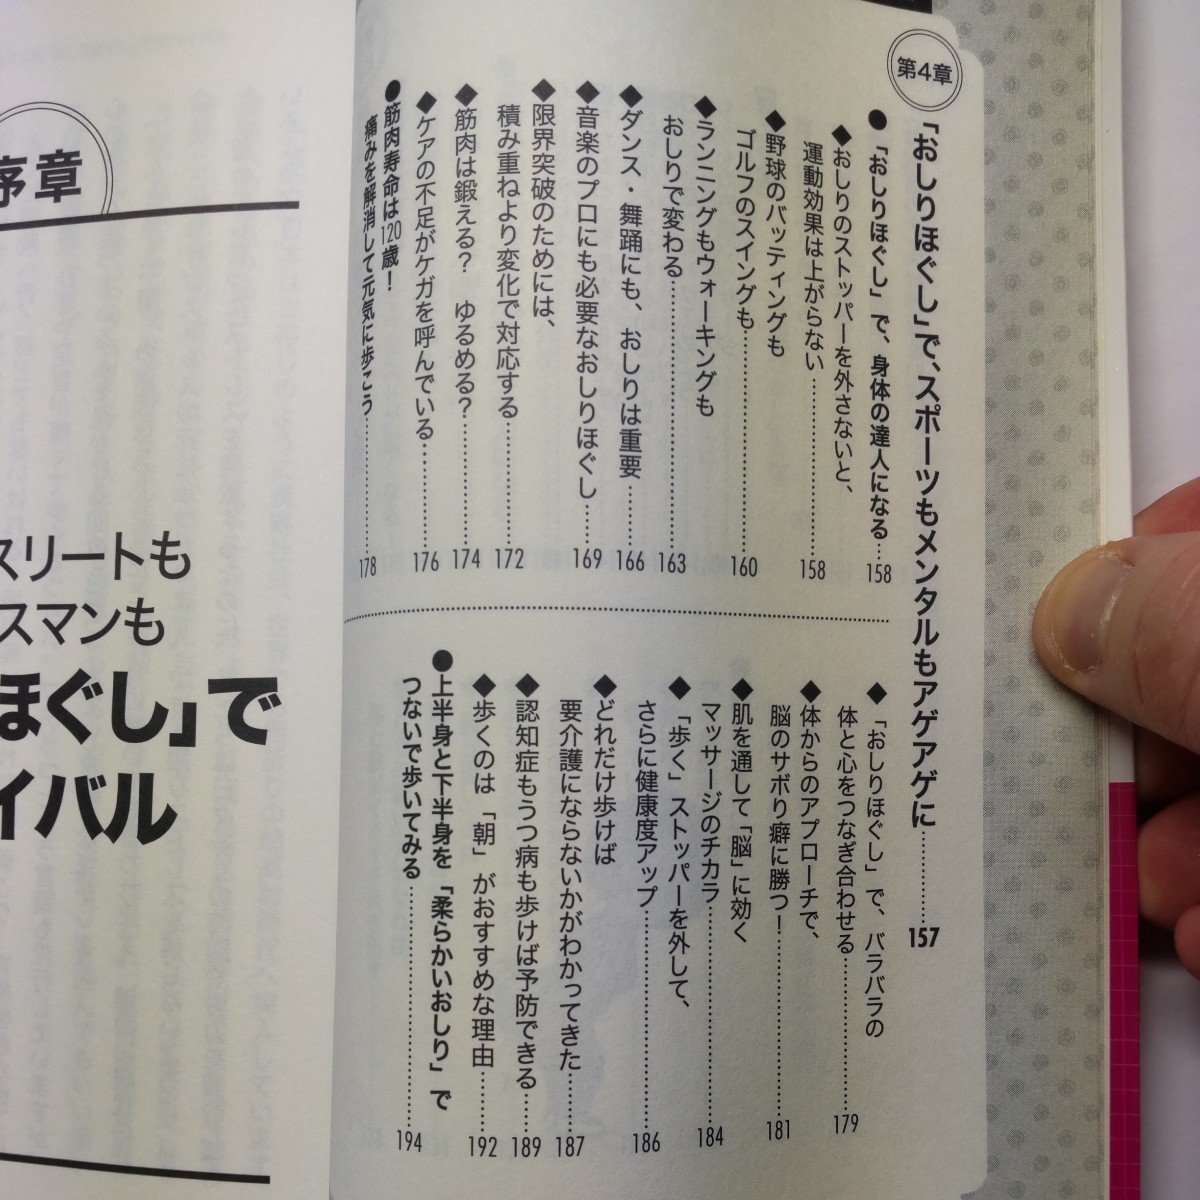 第4章
「おしりほぐし」で、スポーツもメンタルもアゲアゲに………157
●「おしりほぐし」で、身体の達人になる…158
◆おしりのストッパーを外さないと、
運動効果は上がらない………158
◆野球のバッティングも
ゴルフのスイングも………160
◆ランニングもウォーキングも
おしりで変わる………163
◆ダンス・舞踊にも、おしりは重要………166
◆音楽のプロにも必要なおしりほぐし……169
◆限界突破のためには、
積み重ねより変化で対応する………172
◆筋肉は鍛える？　ゆるめる？………174
◆ケアの不足がケガを呼んでいる………176
●筋肉寿命は120歳！
痛みを解消して元気に歩こう………178
◆「おしりほぐし」で、バラバラの
体と心をつなぎ合わせる………179
◆体からのアプローチで、
脳のサボり癖に勝つ！………181
◆肌を通して「脳」に効く
マッサージのチカラ………184
◆「歩く」ストッパーを外して、
さらに健康度アップ………186
◆どれだけ歩けば
要介護にならないかがわかってきた……187
◆認知症もうつ病も歩けば予防できる……189
◆歩くのは「朝」がおすすめな理由………192
●上半身と下半身を「柔らかいおしり」で
つないで歩いてみる………194
序章
スリートも
スマンも
ほぐし」で
イバル